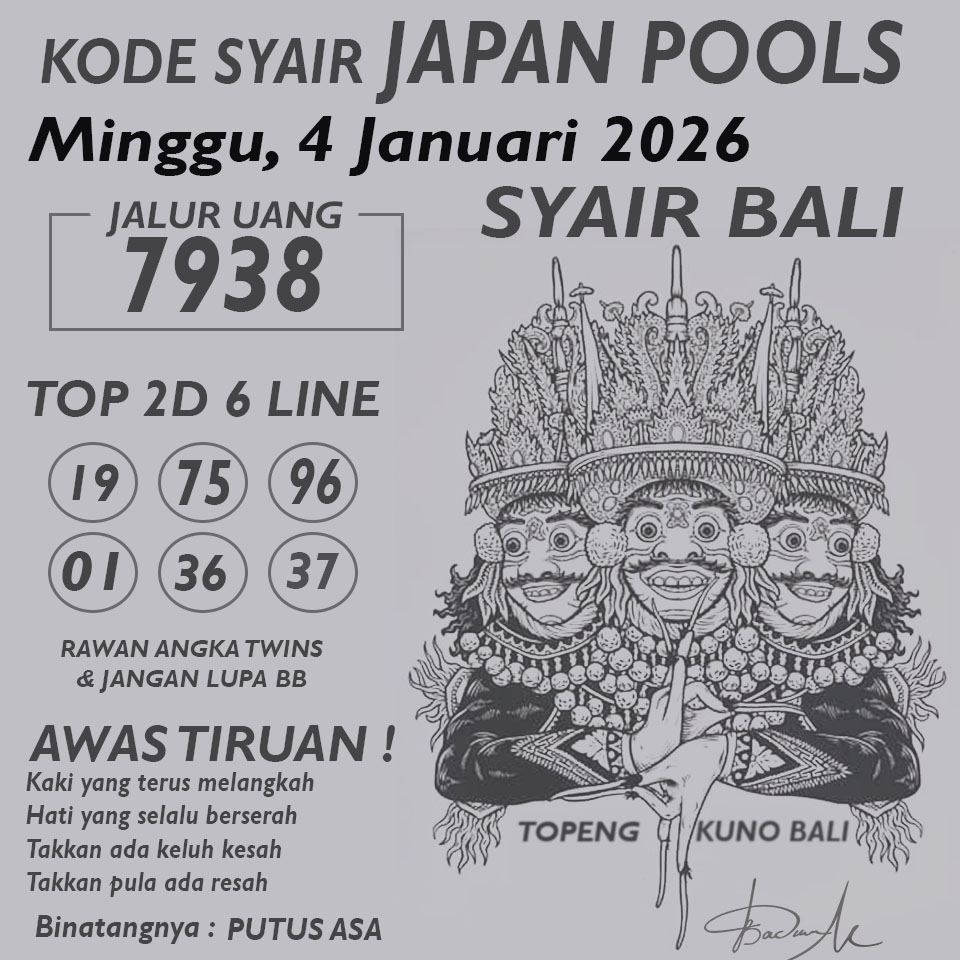 KODE SYAIR JAPAN POOLS
Minggu, 4 Januari 2026
SYAIR BALI
JALUR UANG
7938
TOP 2D 6 LINE
19 75 96
01 36 37
RAWAN ANGKA TWINS
& JANGAN LUPA BB
AWAS TIRUAN !
Kaki yang terus melangkah
Hati yang selalu berserah
Takkan ada keluh kesah
Takkan pula ada resah
Binatangnya : PUTUS ASA
TOPENG KUNO BALI